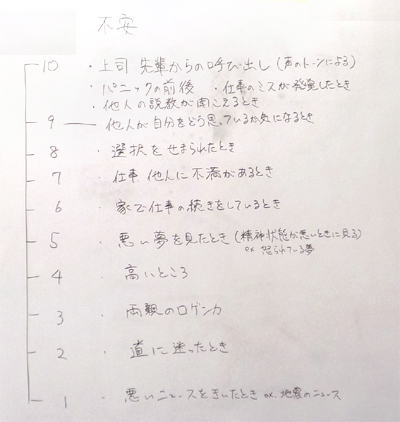 不安
10 ・上司 先輩からの呼び出し (声のトーンによる)
・パニックの前後 ・仕事のミスが発覚したとき
・他人の説教が聞こえるとき
9 他人が自分をどう思っているか気になるとき
8 ・選択をせまられたとき
7 ・仕事 他人に不満があるとき
6 ・家で仕事の続きをしているとき
5 ・悪い夢を見たとき (精神状態が悪いときに見る)
ex 怒られている夢
4 ・高いところ
3 ・両親の口ゲンカ
2 ・道に迷ったとき
1 ・悪いニュースをきいたとき ex. 地震のニュース